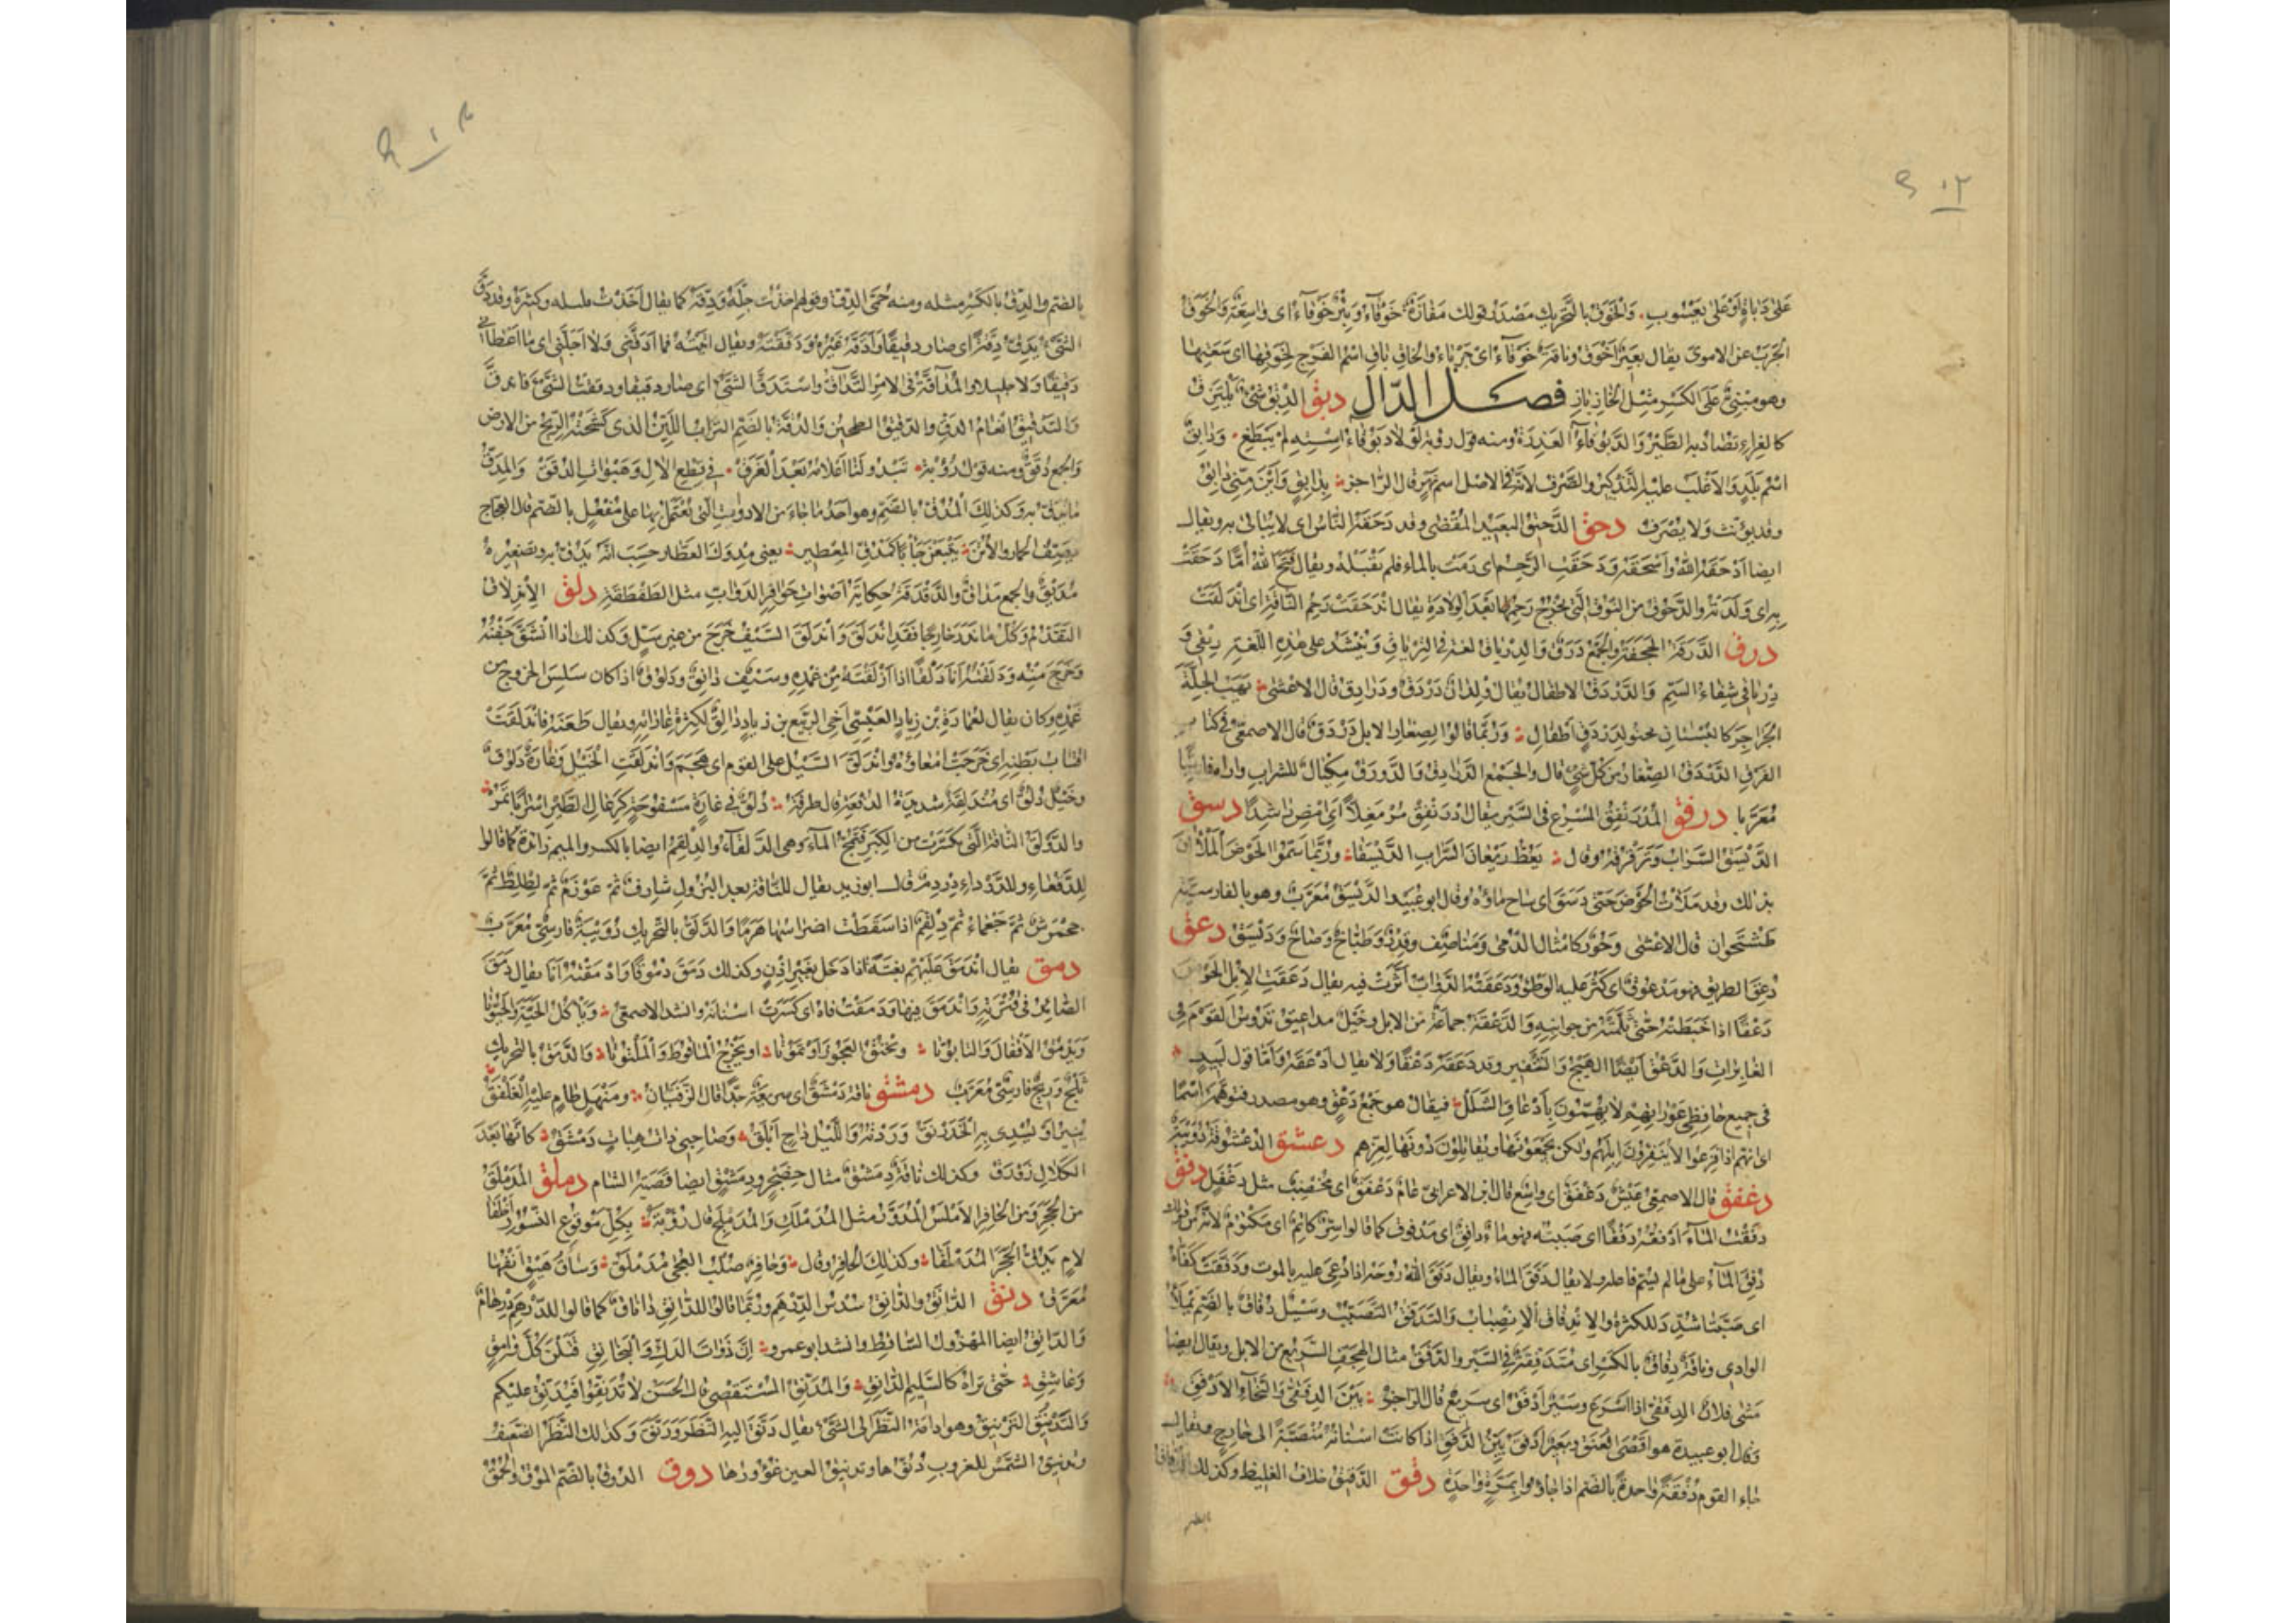 على ذبابة او على يعسوب. والخوق بالتحريك مصدر قولك مفازة خوقاء وبئر خوقاء اى واسعة والخوق
الجرب عن الاموى يقال بعير اخوق وناقة خوقاء اى جرباء والخاق باق اسم الفرج لخوقها اى سعتها
وهو مبنى على الكسر مثل الخاز باز فصل الدال دبق الدبق شىء يلتزق
كالغراء تصاد به الطير والدبوقاء العذرة ومنه قول روبة لولا دبوقاء استه لم يبطغ. ودابق
اسم بلد والاغلب عليه التذكير والصرف لانه فى الاصل اسم نهر قال الراجز بدابق واين منى دابق
وقد يؤنث ولا يصرف دحق الدحيق البعيد المقصى وقد دحقه الناس اى لا يبالى به ويقال
ايضا ادحقه الله واسحقه ودحقت الرحم اى رمت بالماء فلم تقبله ويقال قبح الله اما دحقت
به اى ولدته والدحوق من النوق التى تخرج رحمها بعد الولادة يقال اندحقت رحم الناقة اى اندلقت
درق الدرقة الحجفة والجمع درق والدرياق لغة فى الترياق وينشد على هذه اللغة ريقى و
درياقى شفاء السم والدردق الاطفال يقال ولدان دردق ودرادق قال الاعشى يهب الجلة
الجراجر كالبستان تحنو لدردق اطفال وربما قالوا لصغار الابل دردق قال الاصمعى فى كتاب
الفرق الدردق الصغار من كل شىء قال والجمع الدرادق والدورق مكيال للشراب واراه فارسيا
معربا درفق المدرنفق المسرع فى السير يقال ادرنفق مرمعلا اى امض راشدا دسق
الديسق السراب وترقرقه وقال يعط ريعان السراب الديسقا وربما سموا الحوض الملآن
بذلك وقد ملات الحوض حتى دسق اى ساح ماؤه وقال ابو عبيد الديسق معرب وهو بالفارسية
طشتخوان قال الاعشى وحور كامثال الدمى ومناصف وقدر وطباخ وصاح وديسق دعق
دعق الطريق فهو مدعوق اى كثر عليه الوطؤ ودعقته الدواب اثرت فيه يقال دعقت الابل الحوض
دعقا اذا خبطته حتى تثلمه من جوانبه والدعقة جماعة من الابل وخيل مداعيق تدوس القوم فى
الغارات والدعق ايضا الهيج والتنفير وقد دعقه دعقا ولا يقال ادعقه واما قول لبيد
فى جميع حافظى عوراتهم لا يهمون بادعاق الشلل فيقال هو جمع دعق وهو مصدر فتوهمه اسما
اى انهم اذا فزعوا لا ينفرون ابلهم ولكن يجمعونها ويقاتلون دونها لعزهم دعشق الدعشوقة دويبة
دغفق قال الاصمعى عيش دغفق اى واسع قال ابن الاعرابى عام دغفق اى مخصب مثل دغفل دفق
دفقت الماء ادفقه دفقا اى صببته فهو ماء دافق اى مدفوق كما قالوا سر كاتم اى مكتوم لانه من قولك
دفق الماء على ما لم يسم فاعله ولا يقال دفق الماء ويقال دفق الله روحه اذا دعى عليه بالموت ودفقت كفاه
اى صبتا شدد للكثرة والاندفاق الانصباب والتدفق التصبب وسيل دفاق بالضم يملأ
الوادى وناقة دفاق بالكسر اى متدفقة فى السير والدفق مثال الهجف السريع من الابل ويقال ايضا
مشى فلان الدفقى اذا اسرع وسير ادفق اى سريع قال الراجز بين الدفقى والنجاء الادفق
وقال ابو عبيدة هو اقصى العنق وبعير ادفق بين الدفق اذا كانت اسنانه منتصبة الى خارج ويقال
جاء القوم دفقة واحدة بالضم اذا جاؤوا بمرة واحدة دقق الدقيق خلاف الغليظ وكذلك الدقاق
بالضم
بالضم والدق بالكسر مثله ومنه حمى الدق وقولهم اخذت جله ودقه كما يقال اخذت قليله وكثيره وقد دق
الشىء يدق دقة اى صار دقيقا وادقه غيره ودققه ويقال اتيته فما ادقنى ولا اجلنى اى ما اعطانى
دقيقا ولا جليلا والمداقة فى الامر التداق واستدق الشىء اى صار دقيقا ودققت الشىء فاندق
والتدقيق انعام الدق والدقيق الطحين والدقة بالضم التراب اللين الذى كسحته الريح من الارض
والجمع دقق ومنه قول رؤبة تبدو لنا اعلامه بعد الغرق فى قطع الآل وهبوات الدقق والمدق
ما يدق به وكذلك المدق بالضم وهو احد ما جاء من الادوات التى يعتمل بها على مفعل بالضم قال العجاج
يصف الحمار والاتن يتبعن جابا كمدق المعطير يعنى مدوك العطار حسب انه يدق به وتصغيره
مديق والجمع مداق والدقدقة حكاية اصوات حوافر الدواب مثل الطقطقة دلق الاندلاق
التقدم وكل ما ندر خارجا فقد اندلق واندلق السيف خرج من غير سل وكذلك اذا انشق جفنه
وخرج منه ودلقته انا دلقا اذا ازلقته من غمده وسيف دالق ودلوق اذا كان سلس الخروج من
غمده وكان يقال لعمارة بن زياد العبسى اخى الربيع بن زياد دالق لكثرة غاراته ويقال طعنه فاندلقت
اقتاب بطنه اى خرجت امعاؤه واندلق السيل على القوم اى هجم واندلقت الخيل وغارة دلوق
وخيل دلق اى مندلقة شديدة الدفعة قال طرفة دلق فى غارة مسفوحة كرعال الطير اسرابا تمر
والدلوق الناقة التى تكسرت من الكبر فتمج الماء وهى الدلقاء والدلقم ايضا بالكسر والميم زائدة كما قالوا
للدقعاء وللدرداء دردم قال ابو زيد يقال للناقة بعد البزول شارف ثم عوزم ثم لطلط ثم
جحمرش ثم جعماء ثم دلقم اذا سقطت اضراسها هرما والدلق بالتحريك دويبة فارسى معرب
دمق يقال اندمق عليهم بغتة اذا دخل بغير اذن وكذلك دمق دموقا وادمقته انا يقال دمق
الصائد فى قترته واندمق فيها ودمقت فاه اى كسرت اسنانه وانشد الاصمعى وياكل الحية والحيوتا
ويدمق الاقفال والتابوتا ويخنق العجوز او تموتا او يخرج الماقوط والملتوتا والدمق بالتحريك
ثلج وريح فارسى معرب دمشق ناقة دمشق اى سريعة جدا قال الزفيان ومنهل طام عليه الغلفق
ينير او يسدى به الخدرنق وردته والليل داج ابلق وصاحبى ذات هباب دمشق كانها بعد
الكلال زورق وكذلك ناقة دمشق مثال حضجر ودمشق ايضا قصبة الشام دملق المدملق
من الحجر ومن الحافر الاملس المدور مثل المدملك والمدملج قال رؤبة بكل موقوع النسور اخلقا
لام يدق الحجر المدملقا وكذلك الحافر وقال وحافر صلب العجى مدملق وساق هيق انفها
معرق دنق الدانق والدانق سدس الدرهم وربما قالوا للدانق داناق كما قالوا للدرهم درهام
والدانق ايضا المهزول الساقط وانشد ابو عمرو ان ذوات الدل والبخانق قتلن كل وامق
وعاشق حتى تراه كالسليم الدانق والمدنق المستقصى قال الحسن لا تدنقوا فيدنق عليكم
والتدنيق الترنيق وهو ادامة النظر الى الشىء يقال دنق اليه النظر ورنق وكذلك النظر الضعيف
وتدنيق الشمس للغروب دنوها وتدنيق العين غؤورها دوق الدوق بالضم الموق والحمق